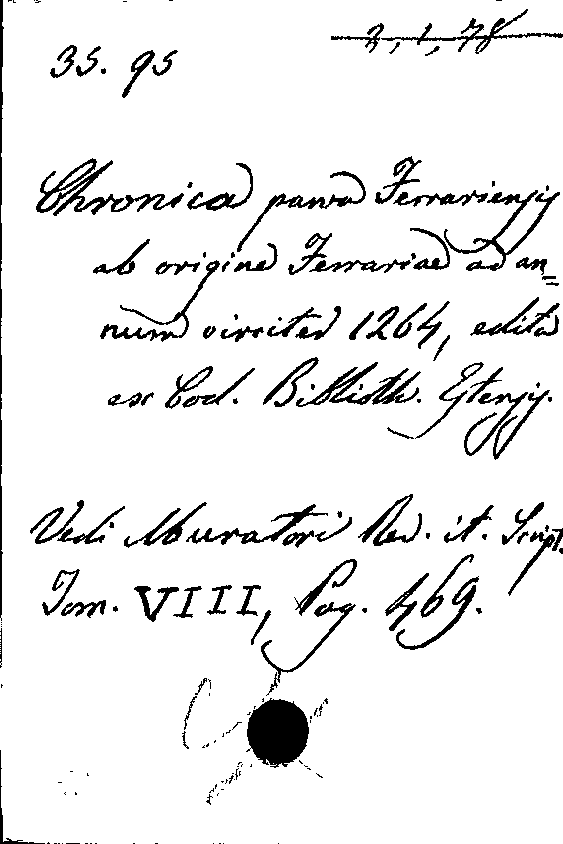 2, 1, 78
35. 95
Chronica parva Ferrariensis
ab origine Ferrariae ad an=
num circiter 1264, edita
ex Cod. Biblioth. Estensis.
Vedi Muratori Rer. it. Script.
Tom. VIII, Pag. 469.